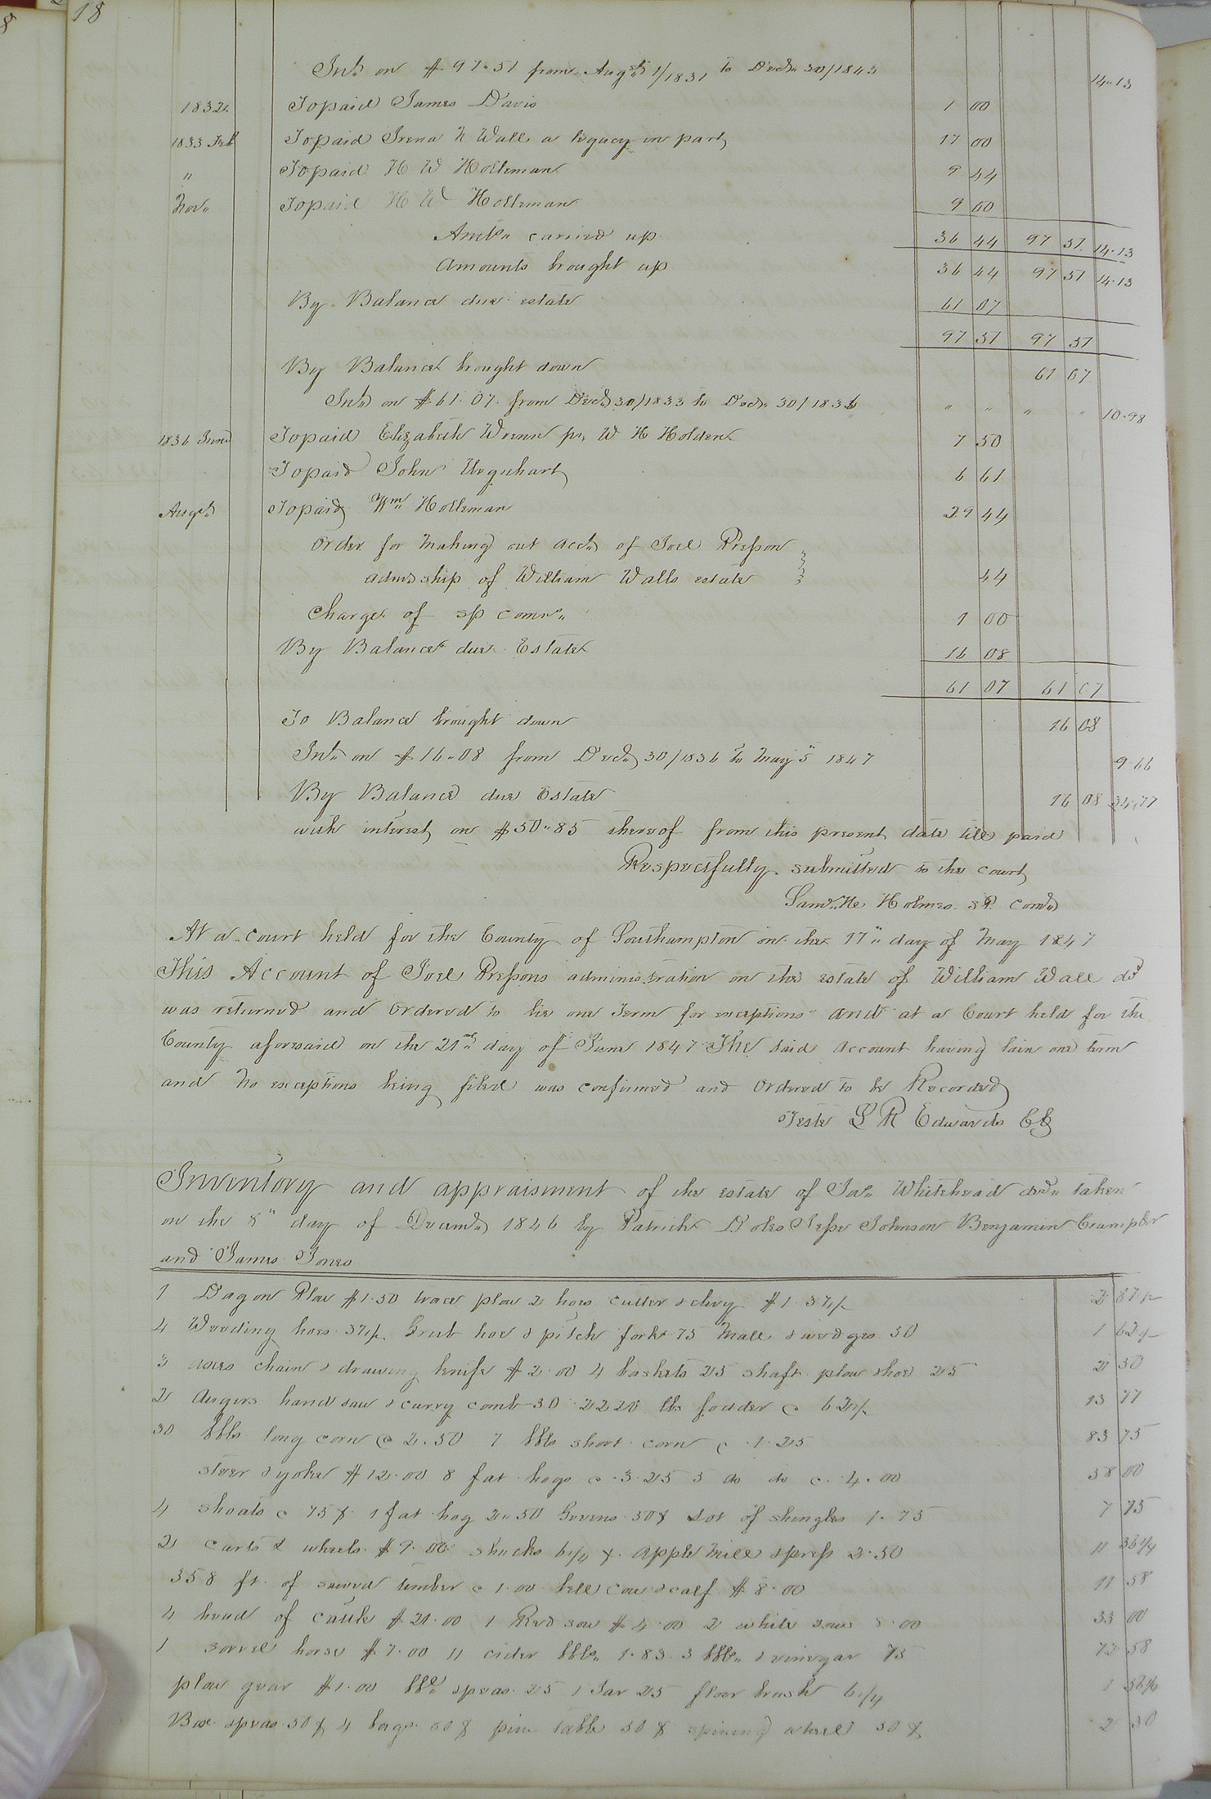 18
Int on $97.51 from Augst 1/1831 to Decr 30/1833 14.13
1832 To paid James Davis 1 00
1833 Feb To paid Irena N Wall a legacy in part 17 00
" To paid H W Holleman 9 44
Nov. To paid H W Holleman 9 00
Amts carried up 36 44 97 51 14.13
Amounts brought up 36 44 97 51 14.13
By Balance due estate 61 07
97 51 97 51
By Balance brought down 61 07
Int on $61.07 from Decr 30/1833 to Decr 30/1836 " " " " 10.98
1836 June To paid Elizabeth Wrenn pr W H Holden 7 50
To paid John Urquhart 6 61
Augst To paid Wm Holleman 29 44
Order for making out acct of Joel Presson
admrship of William Walls estate 44
Charge of sp comr. 1 00
By Balance due Estate 16 08
61 07 61 07
To Balance brought down 16 08
Int on $16.08 from Decr 30/1836 to May 5 1847 9.66
By Balance due Estate 16 08 34.77
with interest on $50.85 thereof from this present date till paid
Respectfully submitted to the court
Saml H. Holmes sp. comr
At a court held for the County of Southampton on the 17" day of May 1847
This Account of Joel Pressons administration on the estate of William Wall decd
was returned and ordered to lie one Term for exceptions and at a Court held for the
County aforesaid on the 21st day of June 1847 The said account having lain one term
and no exceptions being filed was confirmed and Ordered to be Recorded
Teste L R Edwards CC
Inventory and appraisment of the estate of Jas. Whitehead decd. taken
on the 8" day of Decemr 1846 by Patrick Doles Jesse Johnson Benjamin Crumpler
and James Jones
1 Dagon Plow $1.50 trace plow 2 hoes cutter & clevy $1.37½ 2 87½
4 Weeding hoes 37½ Grub hoe & pitch fork 75 Mall & wedges 50 1 62½
3 axes chain & drawing knife $2.00 4 baskets 25 shaft plow shoe 25 2 50
2 Augers hand saw & curry comb 30 2220 lbs fodder @ 62½ 13 77
30 bbls long corn @ 2.50 7 bbls short corn @ 1.25 83 75
steer & yoke $12.00 8 fat hogs @ 3.25 5 do do @ 4.00 58 00
4 shoats @ 75¢ 1 fat hog 2.50 Govens 50¢ Lot of shingles 1.75 7 75
2 carts & wheels $9.00 shucks 6¼¢ apple Mill & press 2.50 11 56¼
358 ft of sawed timber @ 1.00 bell cow & calf $8.00 11 58
4 head of cattle $21.00 1 Red sow $4.00 2 white sows 8.00 33 00
1 sorrel horse $7.00 11 cider bbls. 1.83 3 bbls. & vinegar 75
plow gear $1.00 bbl spear 25 1 Jar 25 floor brush 6¼ 1 56¼
Box spear 50¢ 4 bags 50¢ pine table 50¢ spining wheel 50¢ 2 50